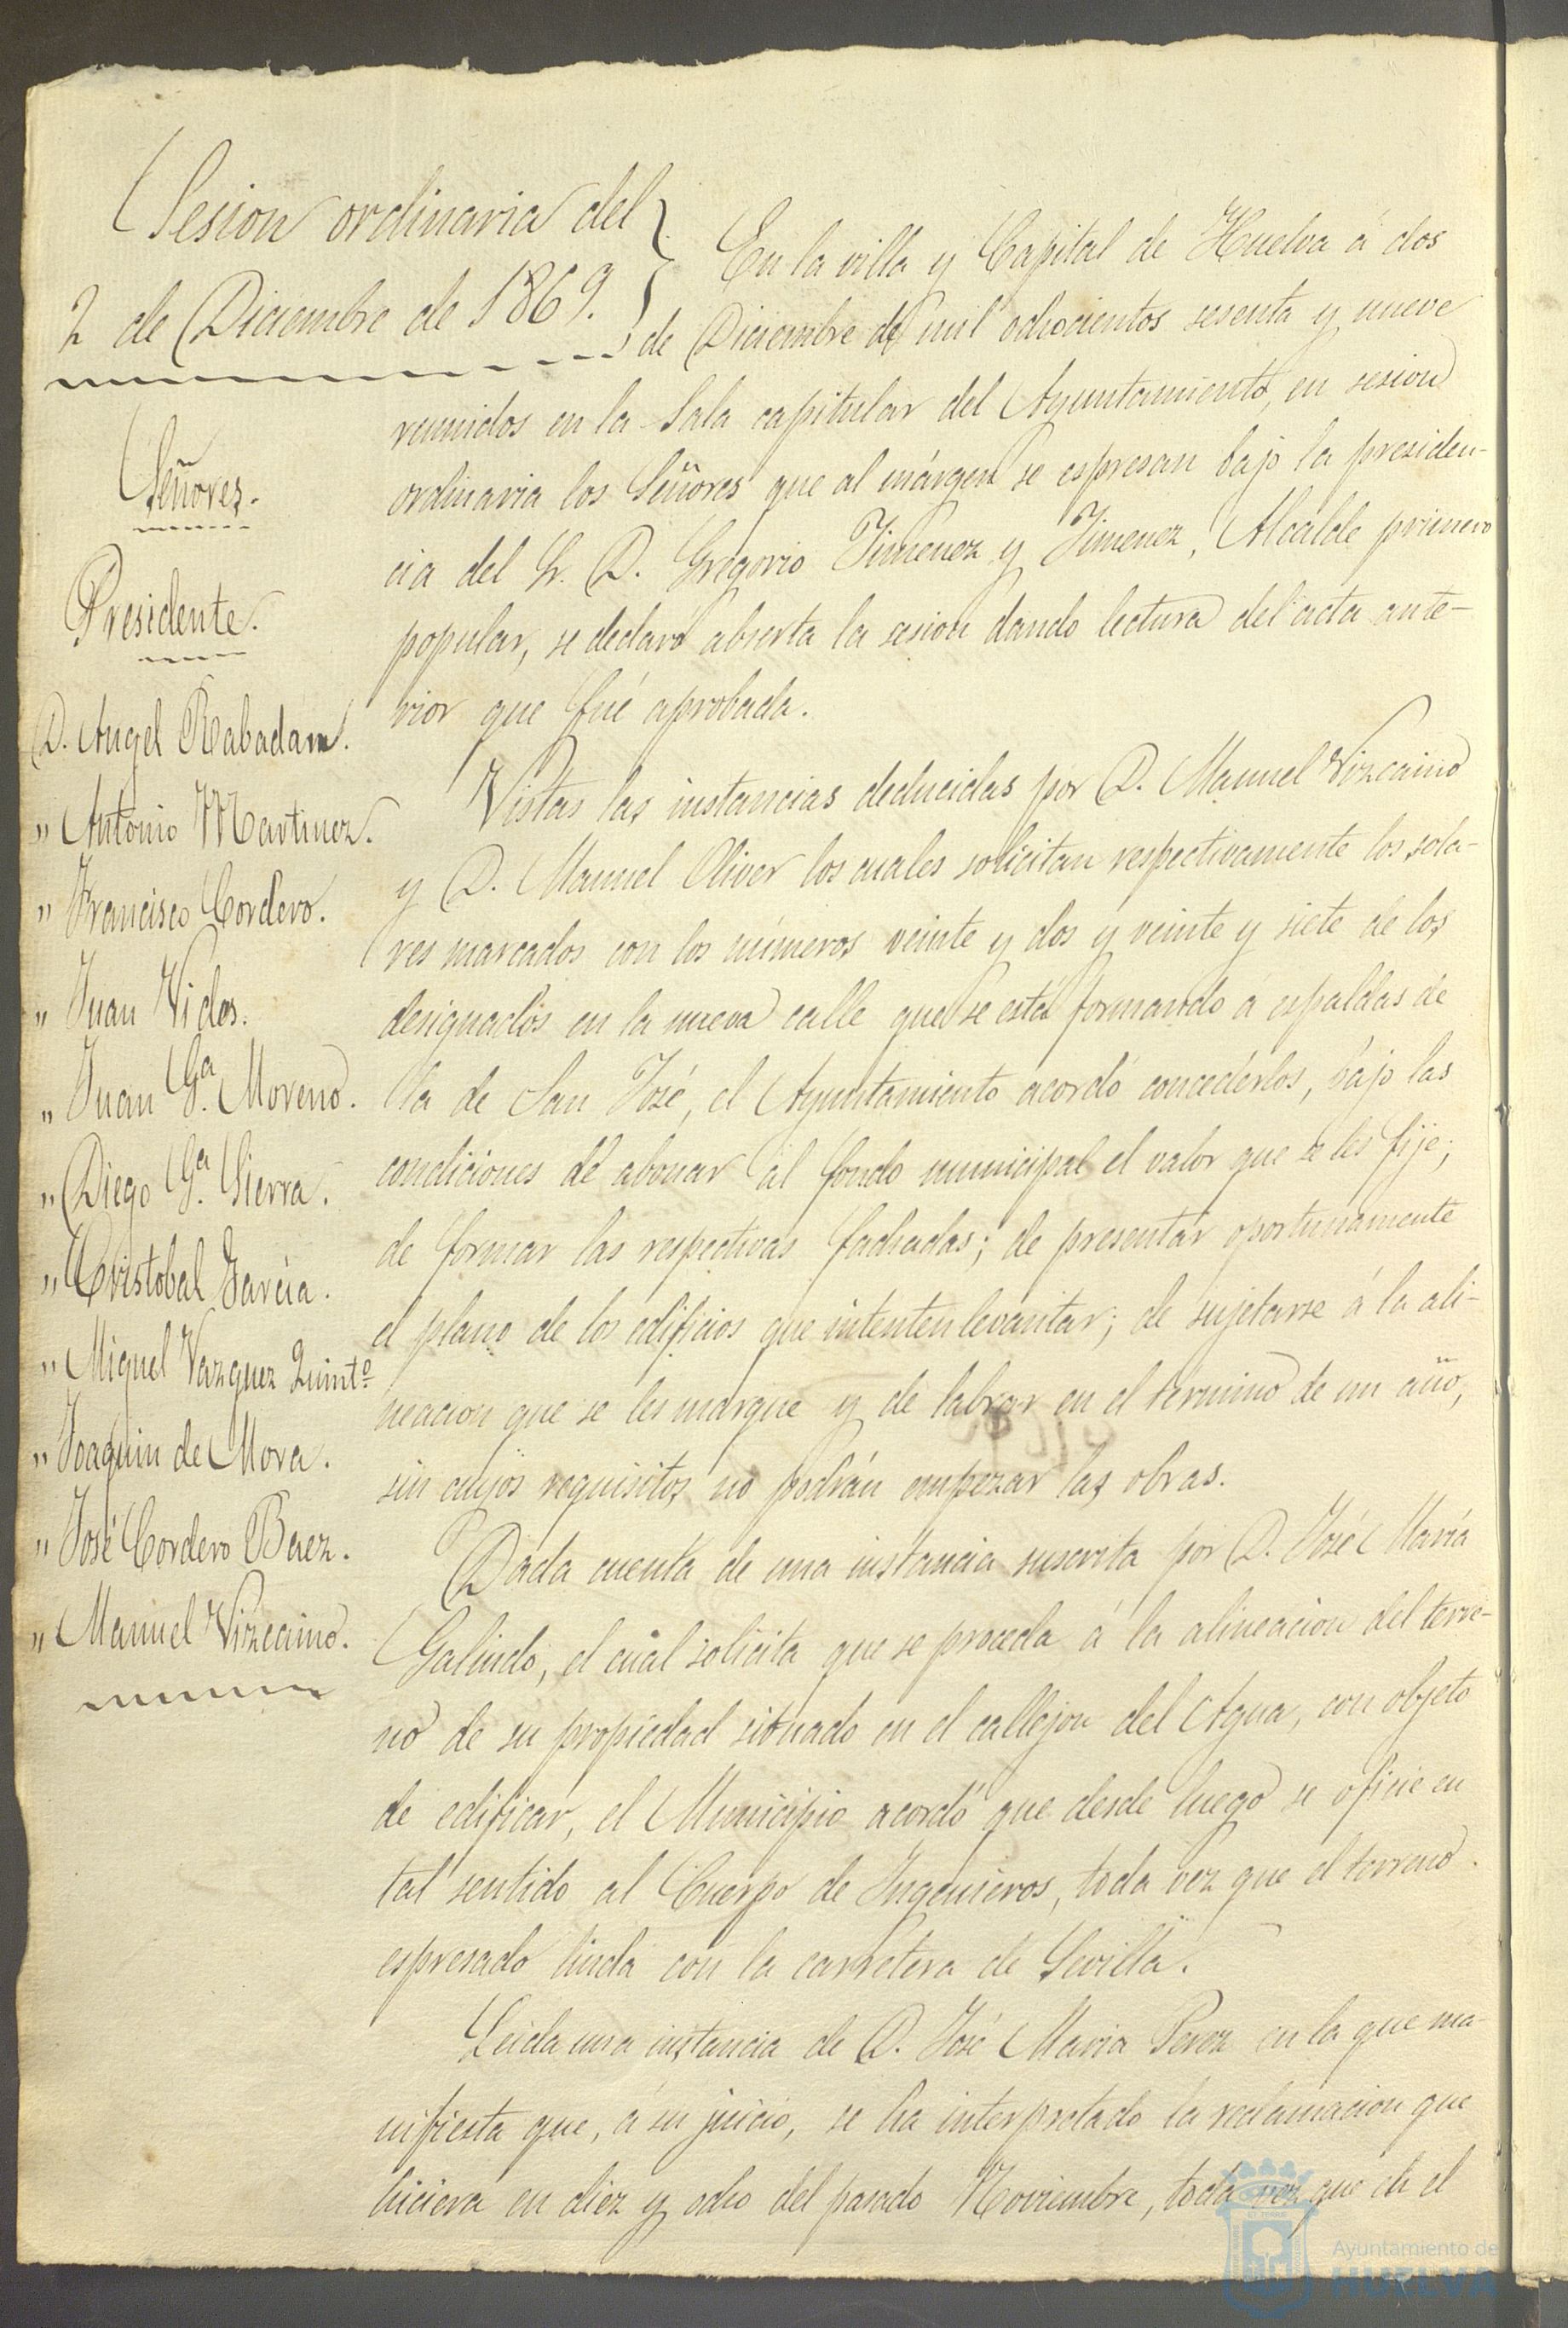 Sesion ordinaria del
2 de Diciembre de 1869.
Señores.
Presidente.
D. Angel Rabadan.
" Antonio Martinez.
" Francisco Cordero.
" Juan Vides.
" Juan Gª. Moreno.
" Diego Gª. Sierra.
" Cristobal Garcia.
" Miguel Vazquez Quintº
" Joaquin de Mora.
" José Cordero Baez.
" Manuel Vizcaino.
En la villa y Capital de Huelva á dos
de Diciembre de mil ochocientos sesenta y nueve
reunidos en la Sala capitular del Ayuntamiento, en sesion
ordinaria los Señores que al márgen se espresan bajo la presiden-
cia del Sr. D. Gregorio Jimenez y Jimenez, Alcalde primero
popular, se declaró abierta la sesion dando lectura del acta ante-
rior que fué aprobada.
Vistas las instancias deducidas por D. Manuel Vizcaino
y D. Manuel Oliver los cuales solicitan respectivamente los sola-
res marcados con los números veinte y dos y veinte y siete de los
designados en la nueva calle que se está formando á espaldas de
la de San José, el Ayuntamiento acordó concederlos, bajo las
condiciones de abonar al fondo municipal el valor que se les fije;
de formar las respectivas fachadas; de presentar oportunamente
el plano de los edificios que intenten levantar; de sujetarse á la ali-
neacion que se les marque y de labrar en el término de un año,
sin cuyos requisitos no podrán empezar las obras.
Dada cuenta de una instancia suscrita por D. José María
Galindo, el cual solicita que se proceda á la alineacion del terre-
no de su propiedad situado en el callejon del Agua, con objeto
de edificar, el Municipio acordó que desde luego se oficie en
tal sentido al Cuerpo de Ingenieros, toda vez que el terreno
espresado linda con la carretera de Sevilla.
Leida una instancia de D. José Maria Perez en la que ma-
nifiesta que, á su juicio, se ha interpretado la reclamacion que
hiciera en diez y ocho del pasado Noviembre, toda vez que en el
Ayuntamiento de
HUELVA